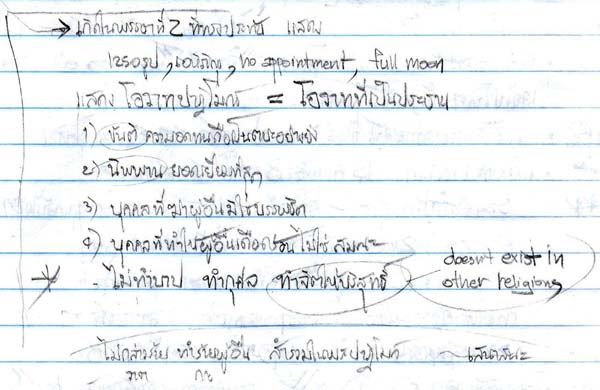 → เกิดในพรรษาที่ 2 ที่ทรงประทับ แสดง
1250รูป, เอหิภิกขุ, no appointment, full moon
แสดง โอวาทปาฏิโมกข์ = โอวาทที่เป็นประธาน
1) ขันติ ความอดทนคือเป็นตบะอย่างยิ่ง
2) นิพพาน ยอดเยี่ยมที่สุด
3) บุคคลที่ฆ่าผู้อื่นมิใช่บรรพชิต
4) บุคคลที่ทำให้ผู้อื่นเดือดร้อน ไม่ใช่ สมณะ
* - ไม่ทำบาป ทำกุศล ทำจิตให้บริสุทธิ์
doesn't exist in
other religions
ไม่กล่าวร้าย ทำร้ายผู้อื่น สำรวมในพระปาฏิโมกข์ เสนาสนะ
วาจา กาย